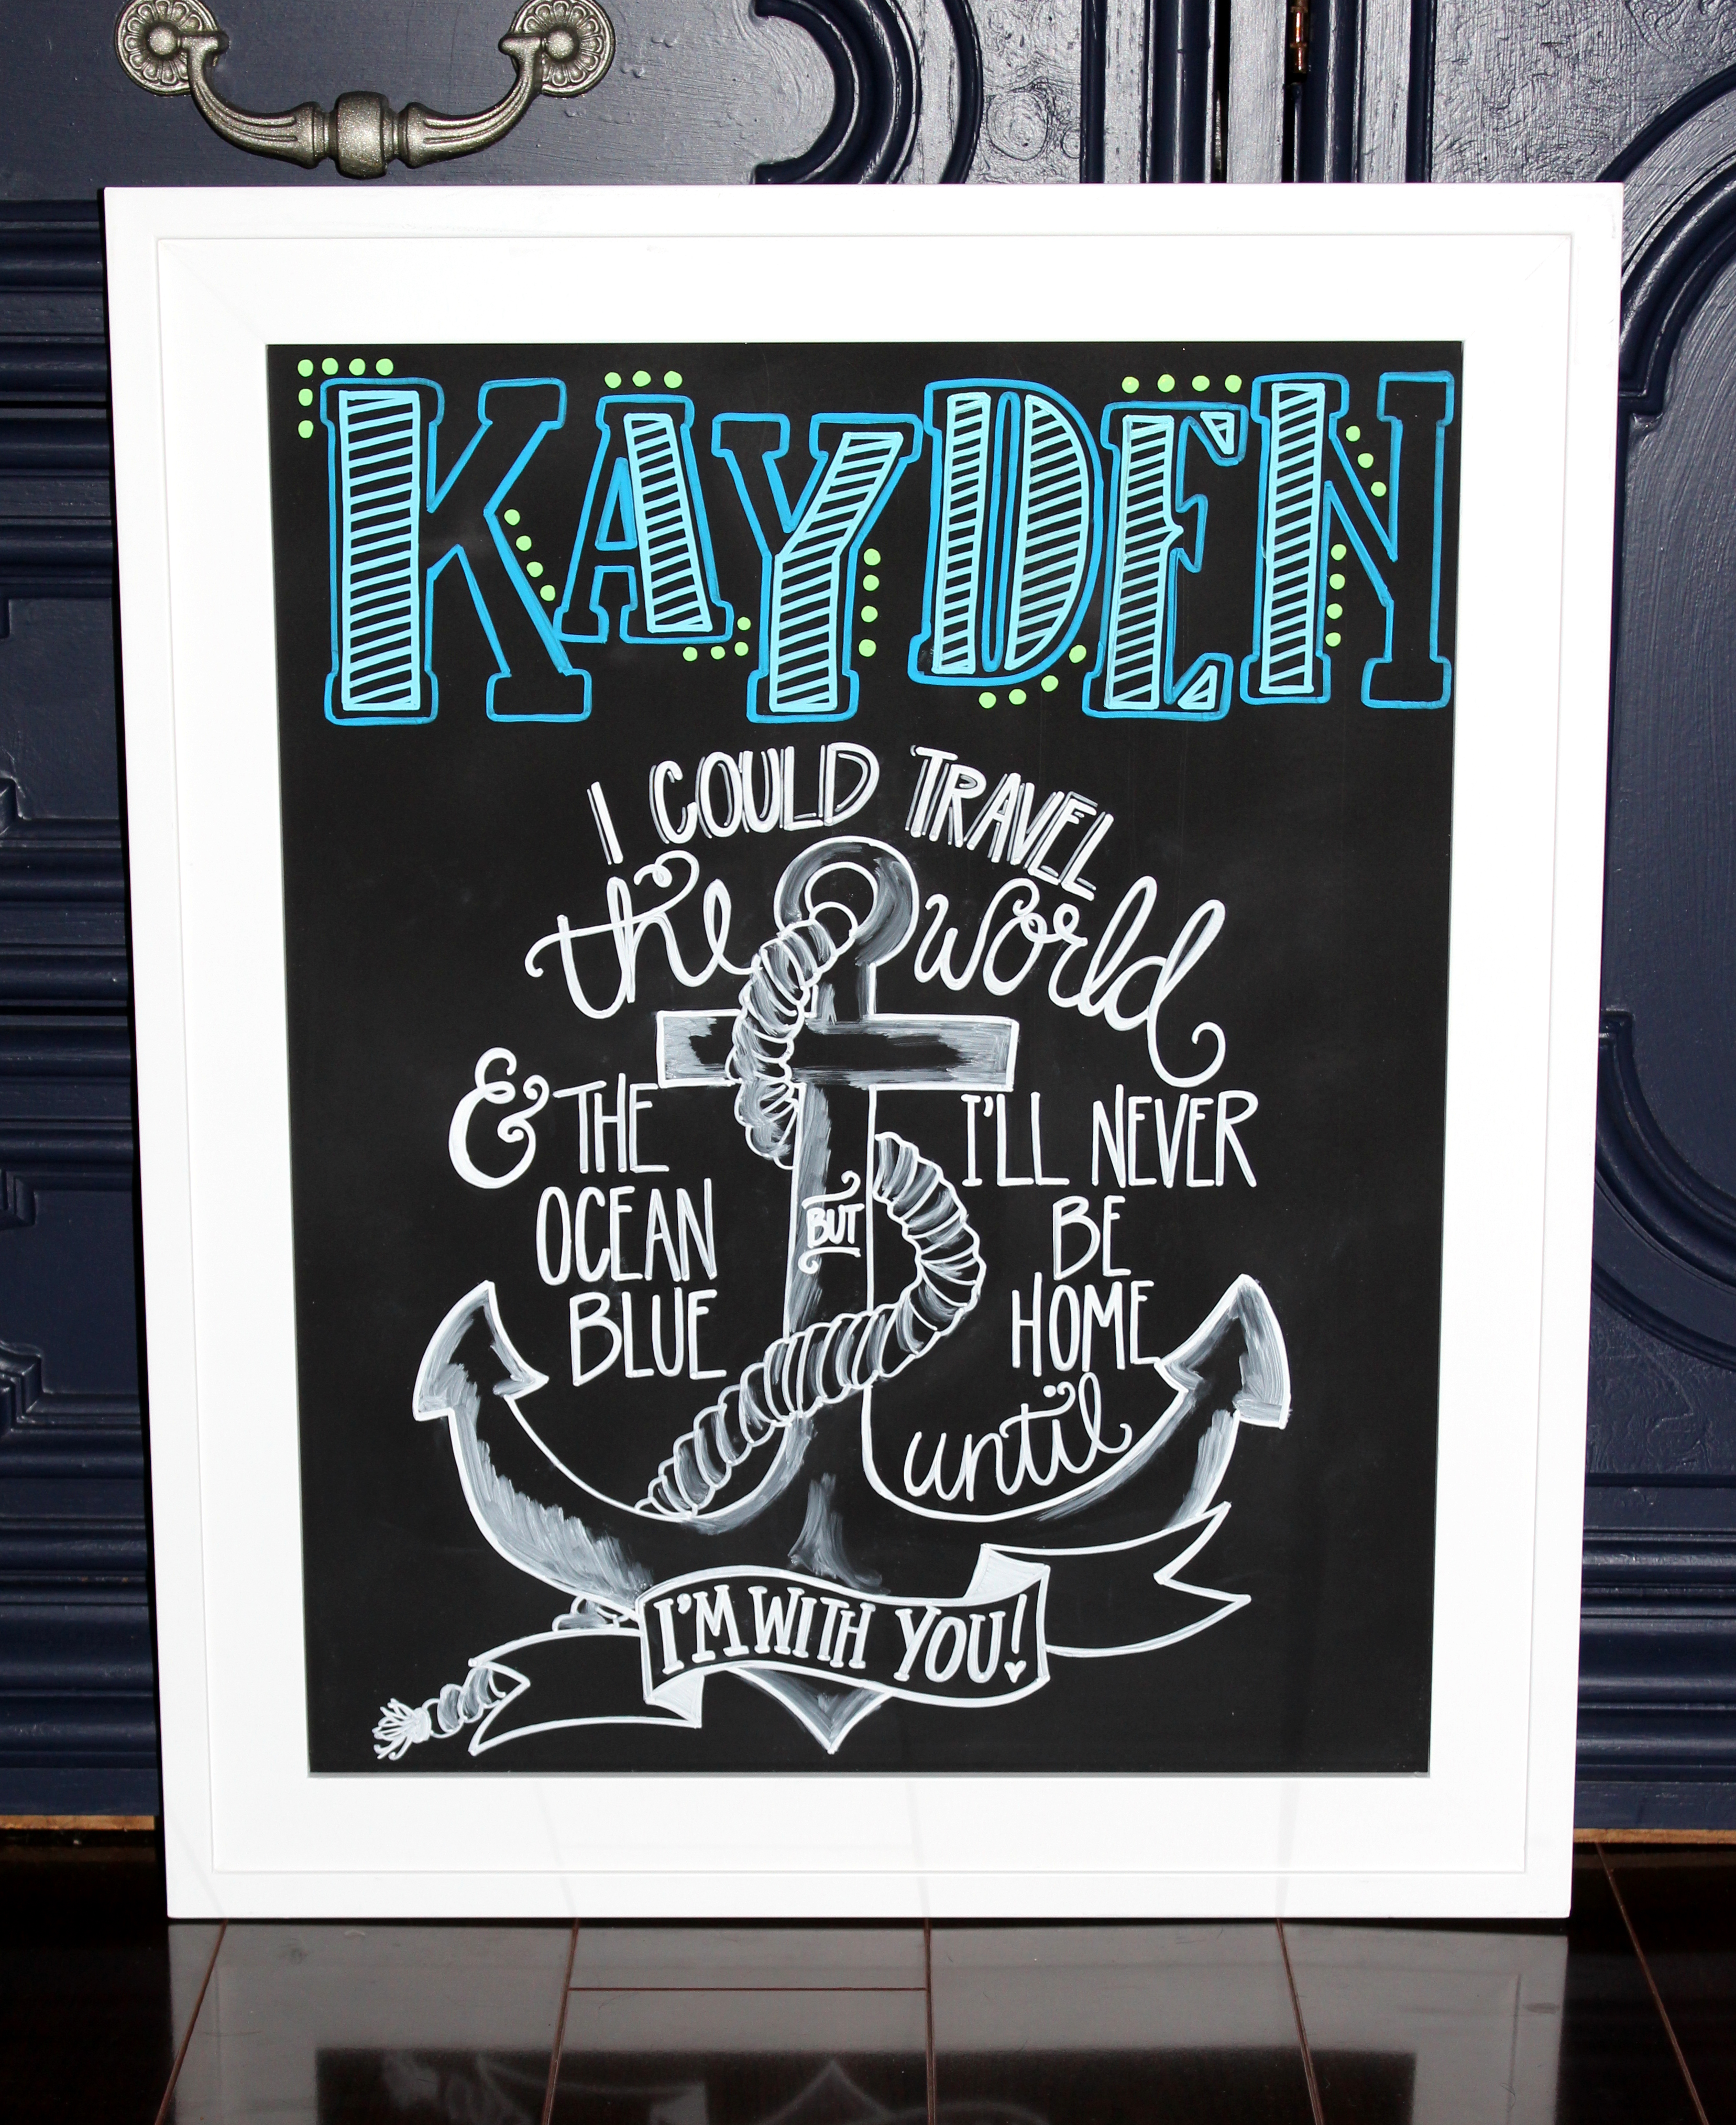 KAYDEN
I COULD TRAVEL
the world
& THE
OCEAN
BLUE
BUT
I'LL NEVER
BE
HOME
until
I'M WITH YOU!